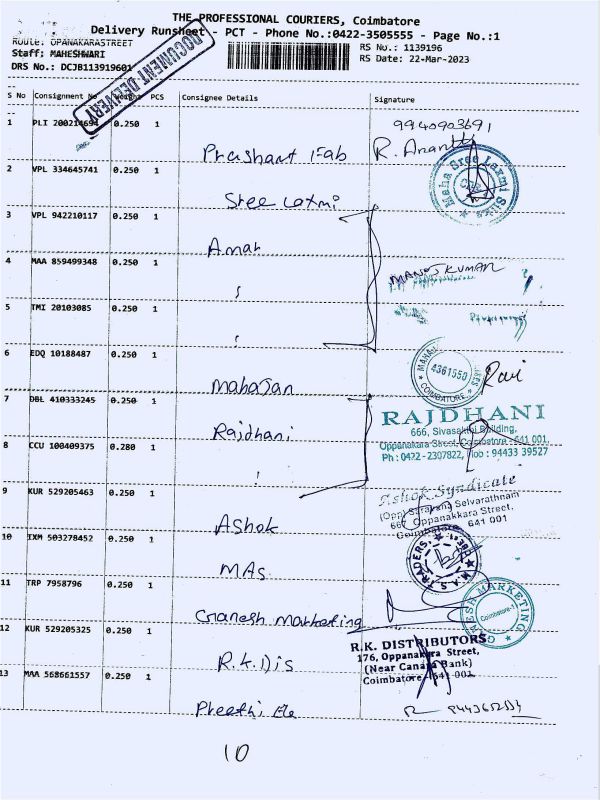 THE PROFESSIONAL COURIERS, Coimbatore
Delivery Runsheet - PCT - Phone No.:0422-3505555 - Page No.:1
Route: OPANAKARASTREET
Staff: MAHESHWARI
DRS No.: DCJB113919601
RS No.: 1139196
RS Date: 22-Mar-2023
DOCUMENT DELIVERY
S No Consignment No Weight PCS Consignee Details Signature
1 PLI 200214694 0.250 1 Prashant Fab 9940903691
R. Ananth
2 VPL 334645741 0.250 1 Sree Laxmi
Maha Sree Laxmi Silks
3 VPL 942210117 0.250 1 Amar
4 MAA 859499348 0.250 1 "
MANOJ KUMAR
5 TMI 20103085 0.250 1 "
6 EDQ 10188487 0.250 1 Mahajan
4361550
COIMBATORE
Ravi
7 DBL 410333245 0.250 1 Rajdhani
RAJDHANI
666, Sivasakthi Building,
Oppanakara Street, Coimbatore - 641 001.
Ph : 0422 - 2307822, Mob : 94433 39527
8 CCU 100409375 0.280 1 "
9 KUR 529205463 0.250 1 Ashok
Ashok Syndicate
(Opp) Saravana Selvarathnam
667, Oppanakkara Street,
Coimbatore 641 001
10 IXM 503278452 0.250 1 MAS
M.A.S. TRADERS
11 TRP 7958796 0.250 1 Ganesh Marketing
GANESH MARKETING
Coimbatore-1
12 KUR 529205325 0.250 1 R.K. Dis
R.K. DISTRIBUTORS
176, Oppanakara Street,
(Near Canara Bank)
Coimbatore - 641 001
13 MAA 568661557 0.250 1 Preethi Ele
10